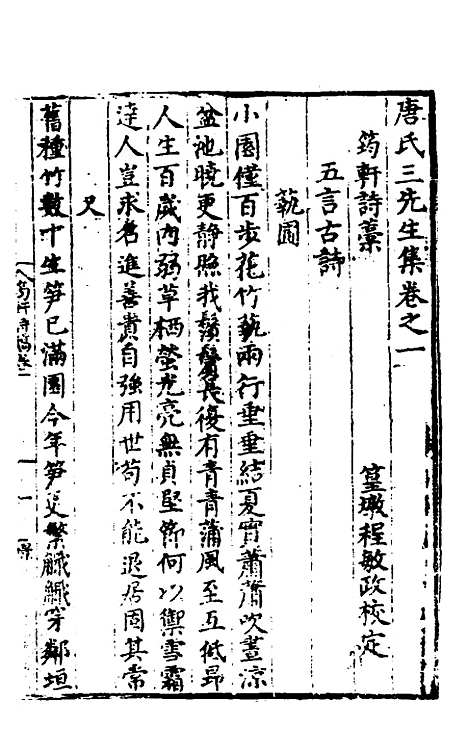 唐氏三先生集卷之一
筠軒詩藁 篁墩程敏政校定
五言古詩
蓺圃
小園僅百步花竹蓺兩行垂垂結夏實蕭蕭吹晝涼
盆池曉更靜照我鬚鬢長復有青青蒲風至互低昂
人生百歲內弱草栖螢光亮無貞堅節何以禦雪霜
達人豈求名進善貴自強用世苟不能退居固其常
又
舊種竹數十生笋已滿園今年笋更繁觿觿穿鄰垣
筠軒詩稿卷一